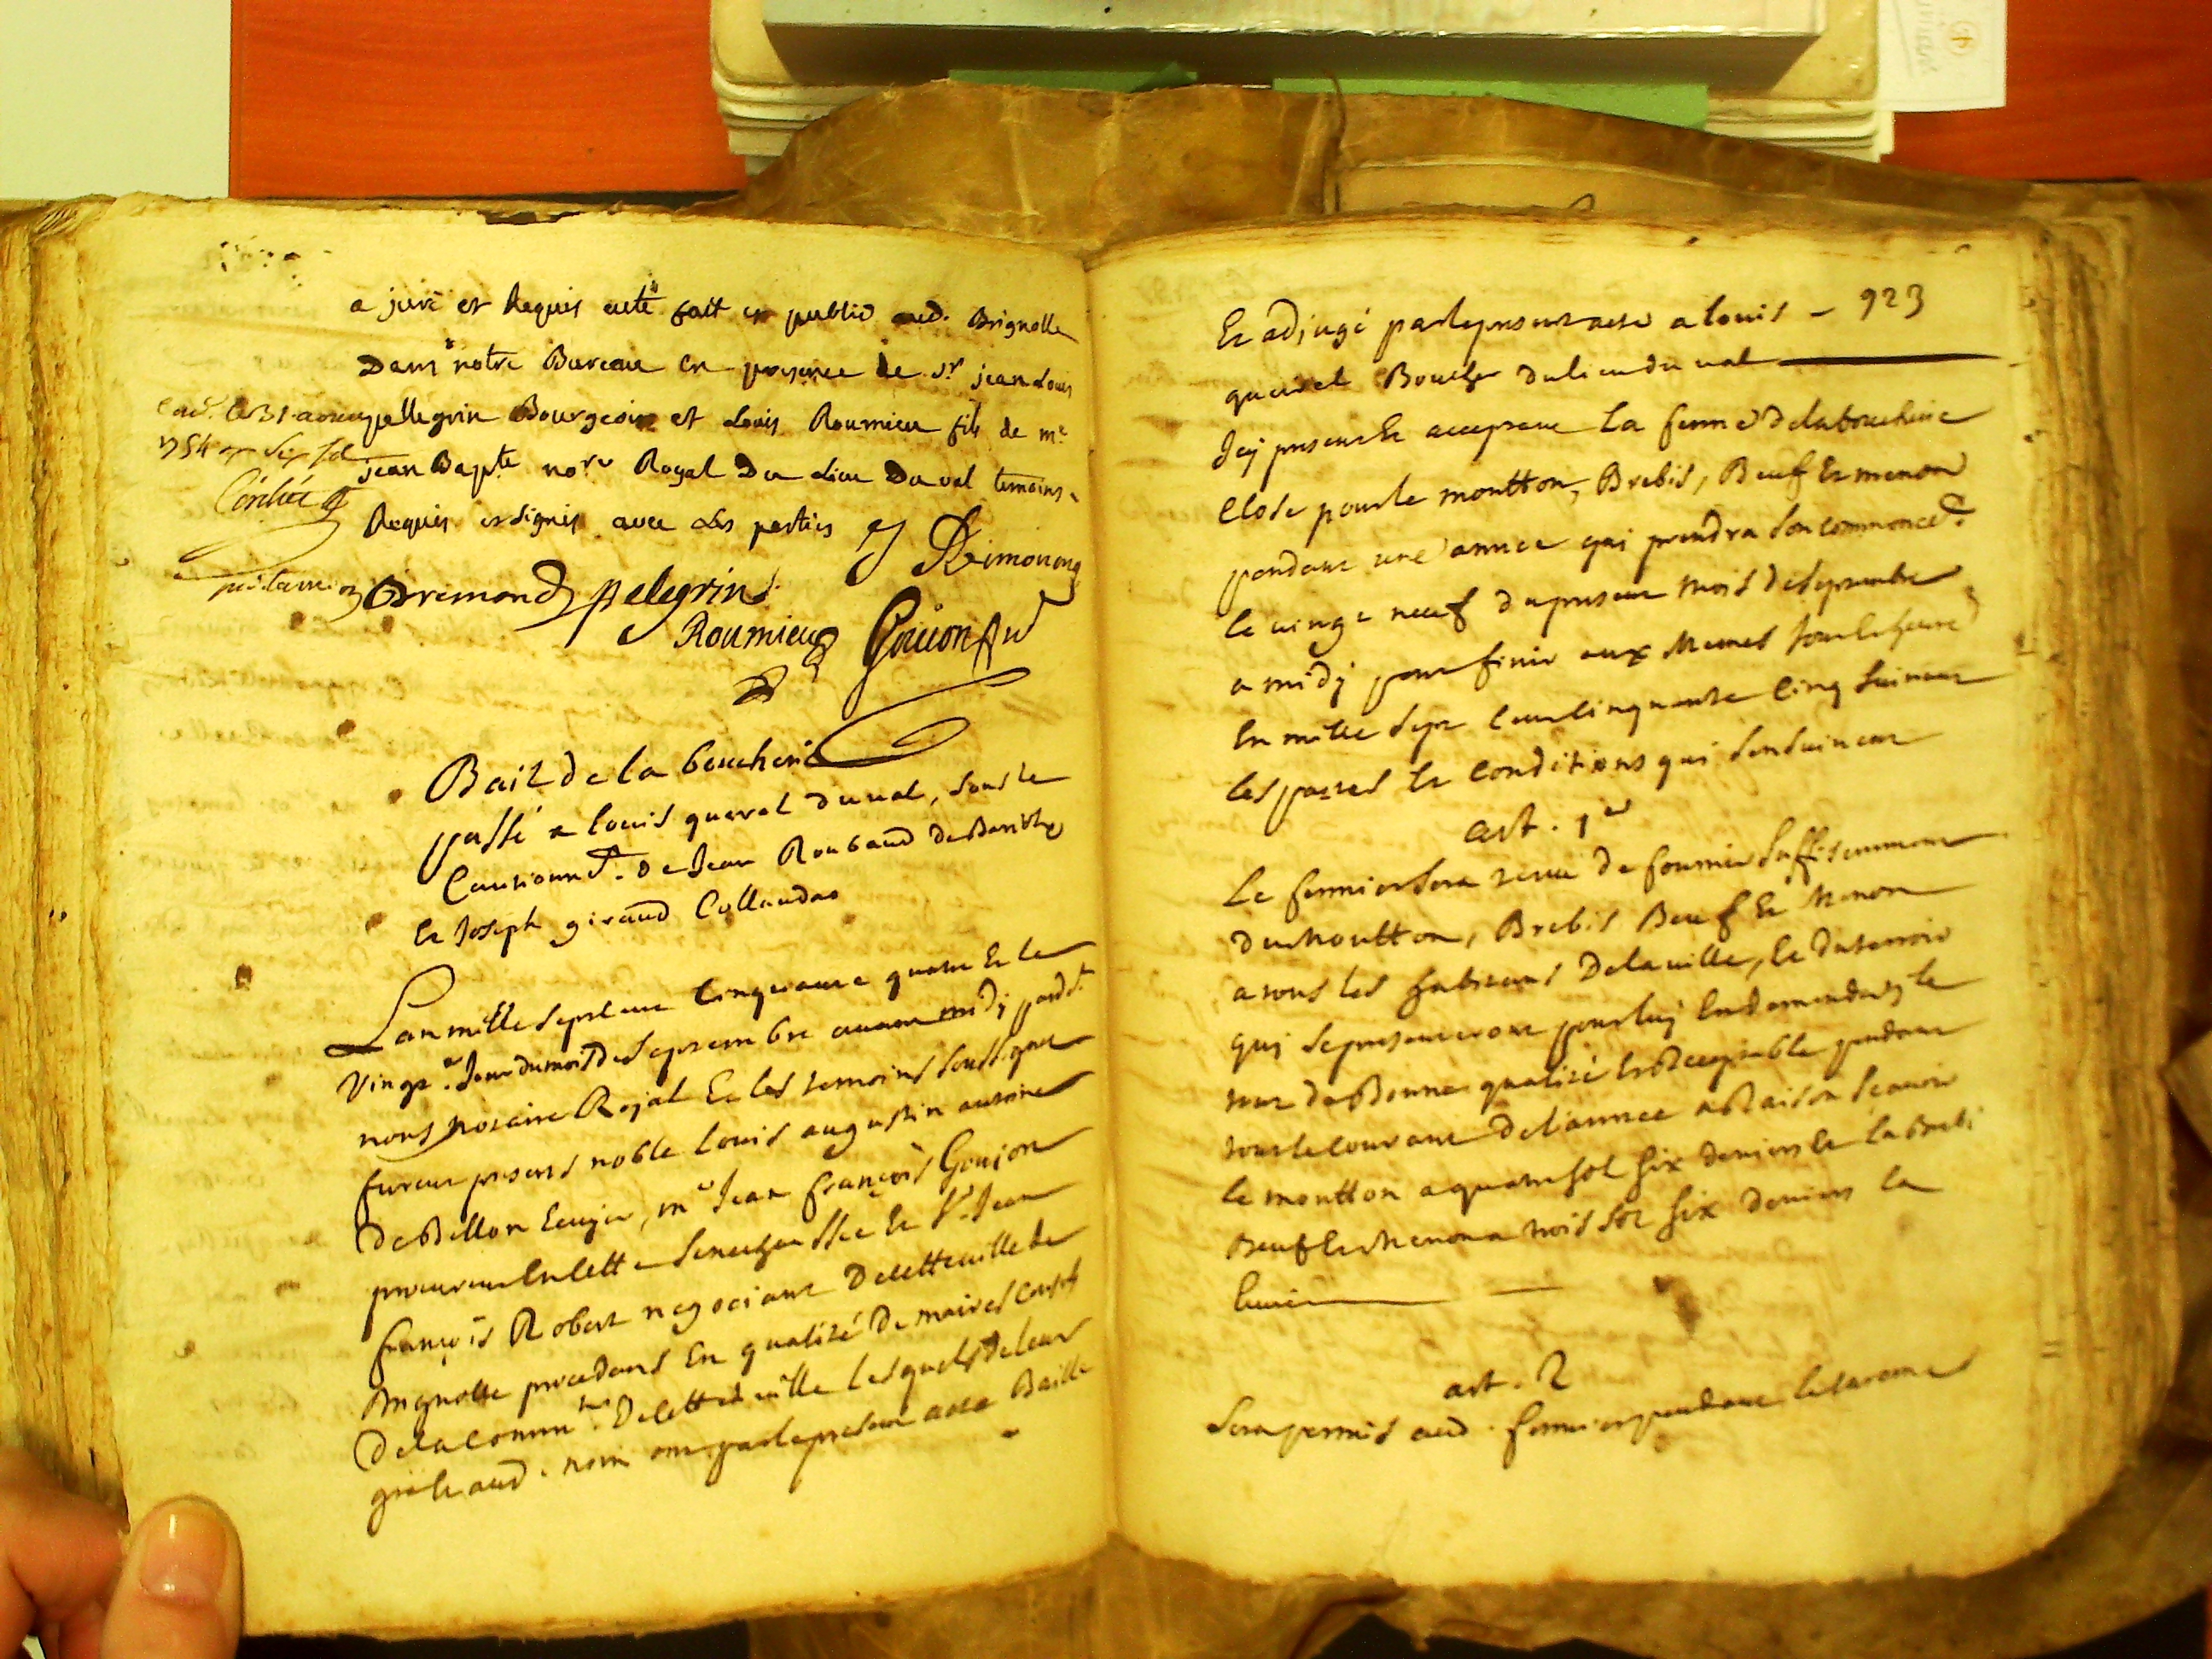 a juré et Requis acte fait et publié aud. Brignolle
Dans notre Bureau en presence de Sr. jean Louis
pellegrin Bourgeois et Louis Roumieu fils de me
jean Bapte nore Royal Du Lieu Du val temoins
Requis et signés avec Les parties
1754
Bremond pelegrin
Roumieu Goujon
Bail de la boucherie
passé a louis queirel du val, sous le
Cautionnt. de Jean Roubaud
Et Joseph giraud
Lan mille sept cens cinquante quatre Et le
vingt Jour du mois de septembre avant midi pard.t
nous notaire Royal Et les temoins soussignes
furent presens noble louis augustin antoine
de Bellon Ecuyer, me Jean françois Goujon
procureur En cette senechaussée Et Sr. Jean
françois Robert negociant De cette ville de
Brignolle procedans En qualité De maires consuls
De la commté. De cette ville Lesquels de leur
gré Et aud. nom ont par le present acte Baillé
Et adjugé par le present acte a louis - 923
queirel Boucher du lieu du val
Icy present Et acceptant La ferme de la boucherie
close pour le moutton, Brebis, Beuf Et menon
pendant une année qui prendra son commencet.
le vingt neuf du present mois de septembre
a midi pour finir aux Memes Jour Et heure
En mille sept cens cinquante cinq suivant
les pactes Et conditions qui sensuivent
art. 1er
Le fermier sera tenu de fournir suffisemment
du Moutton, Brebis Beuf Et Menon
a tous les habitans De la ville, Et du terroir
qui se presenteront pour luy En demander, le
tout de Bonne qualité Et Receptable pendant
tout le courant De l'année a Raison scavoir
le moutton a quatre sol six deniers Et la Brebi
Beuf Et Menon a trois sol six deniers la
Livre
art. 2
Sera permis aud. fermier pendant le careme